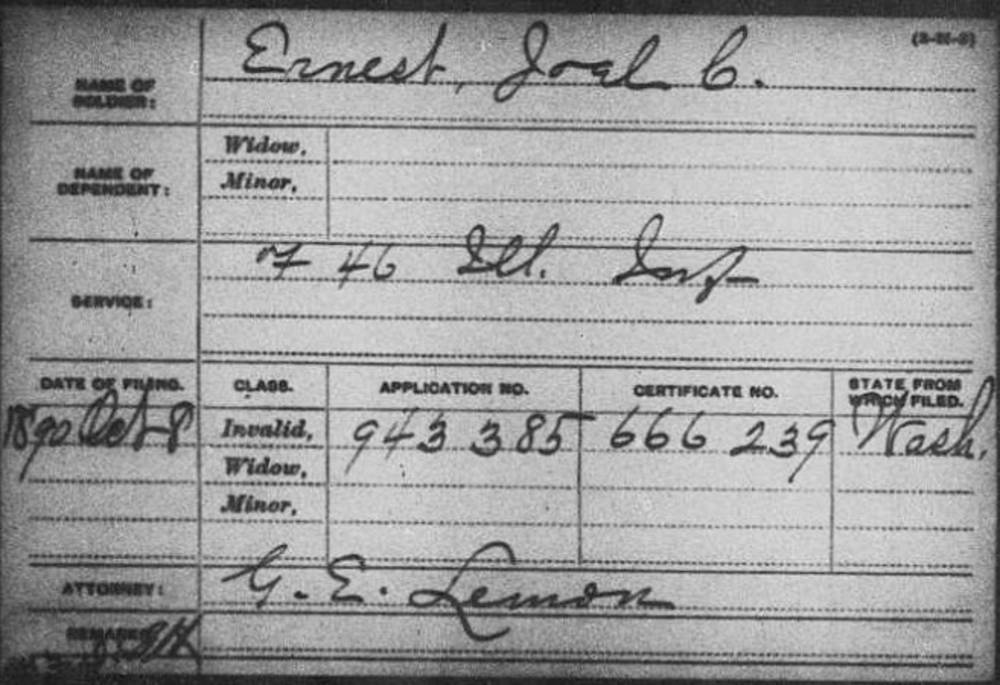 (3-21-8)
NAME OF SOLDIER: Ernest, Joel C.
NAME OF DEPENDENT: Widow,
Minor,
SERVICE: F 46 Ill. Inf
DATE OF FILING. CLASS. APPLICATION NO. CERTIFICATE NO. STATE FROM WHICH FILED.
1890 Oct 8 Invalid, 943 385 666 239 Wash.
Widow,
Minor,
ATTORNEY: G. E. Lemon
REMARKS: